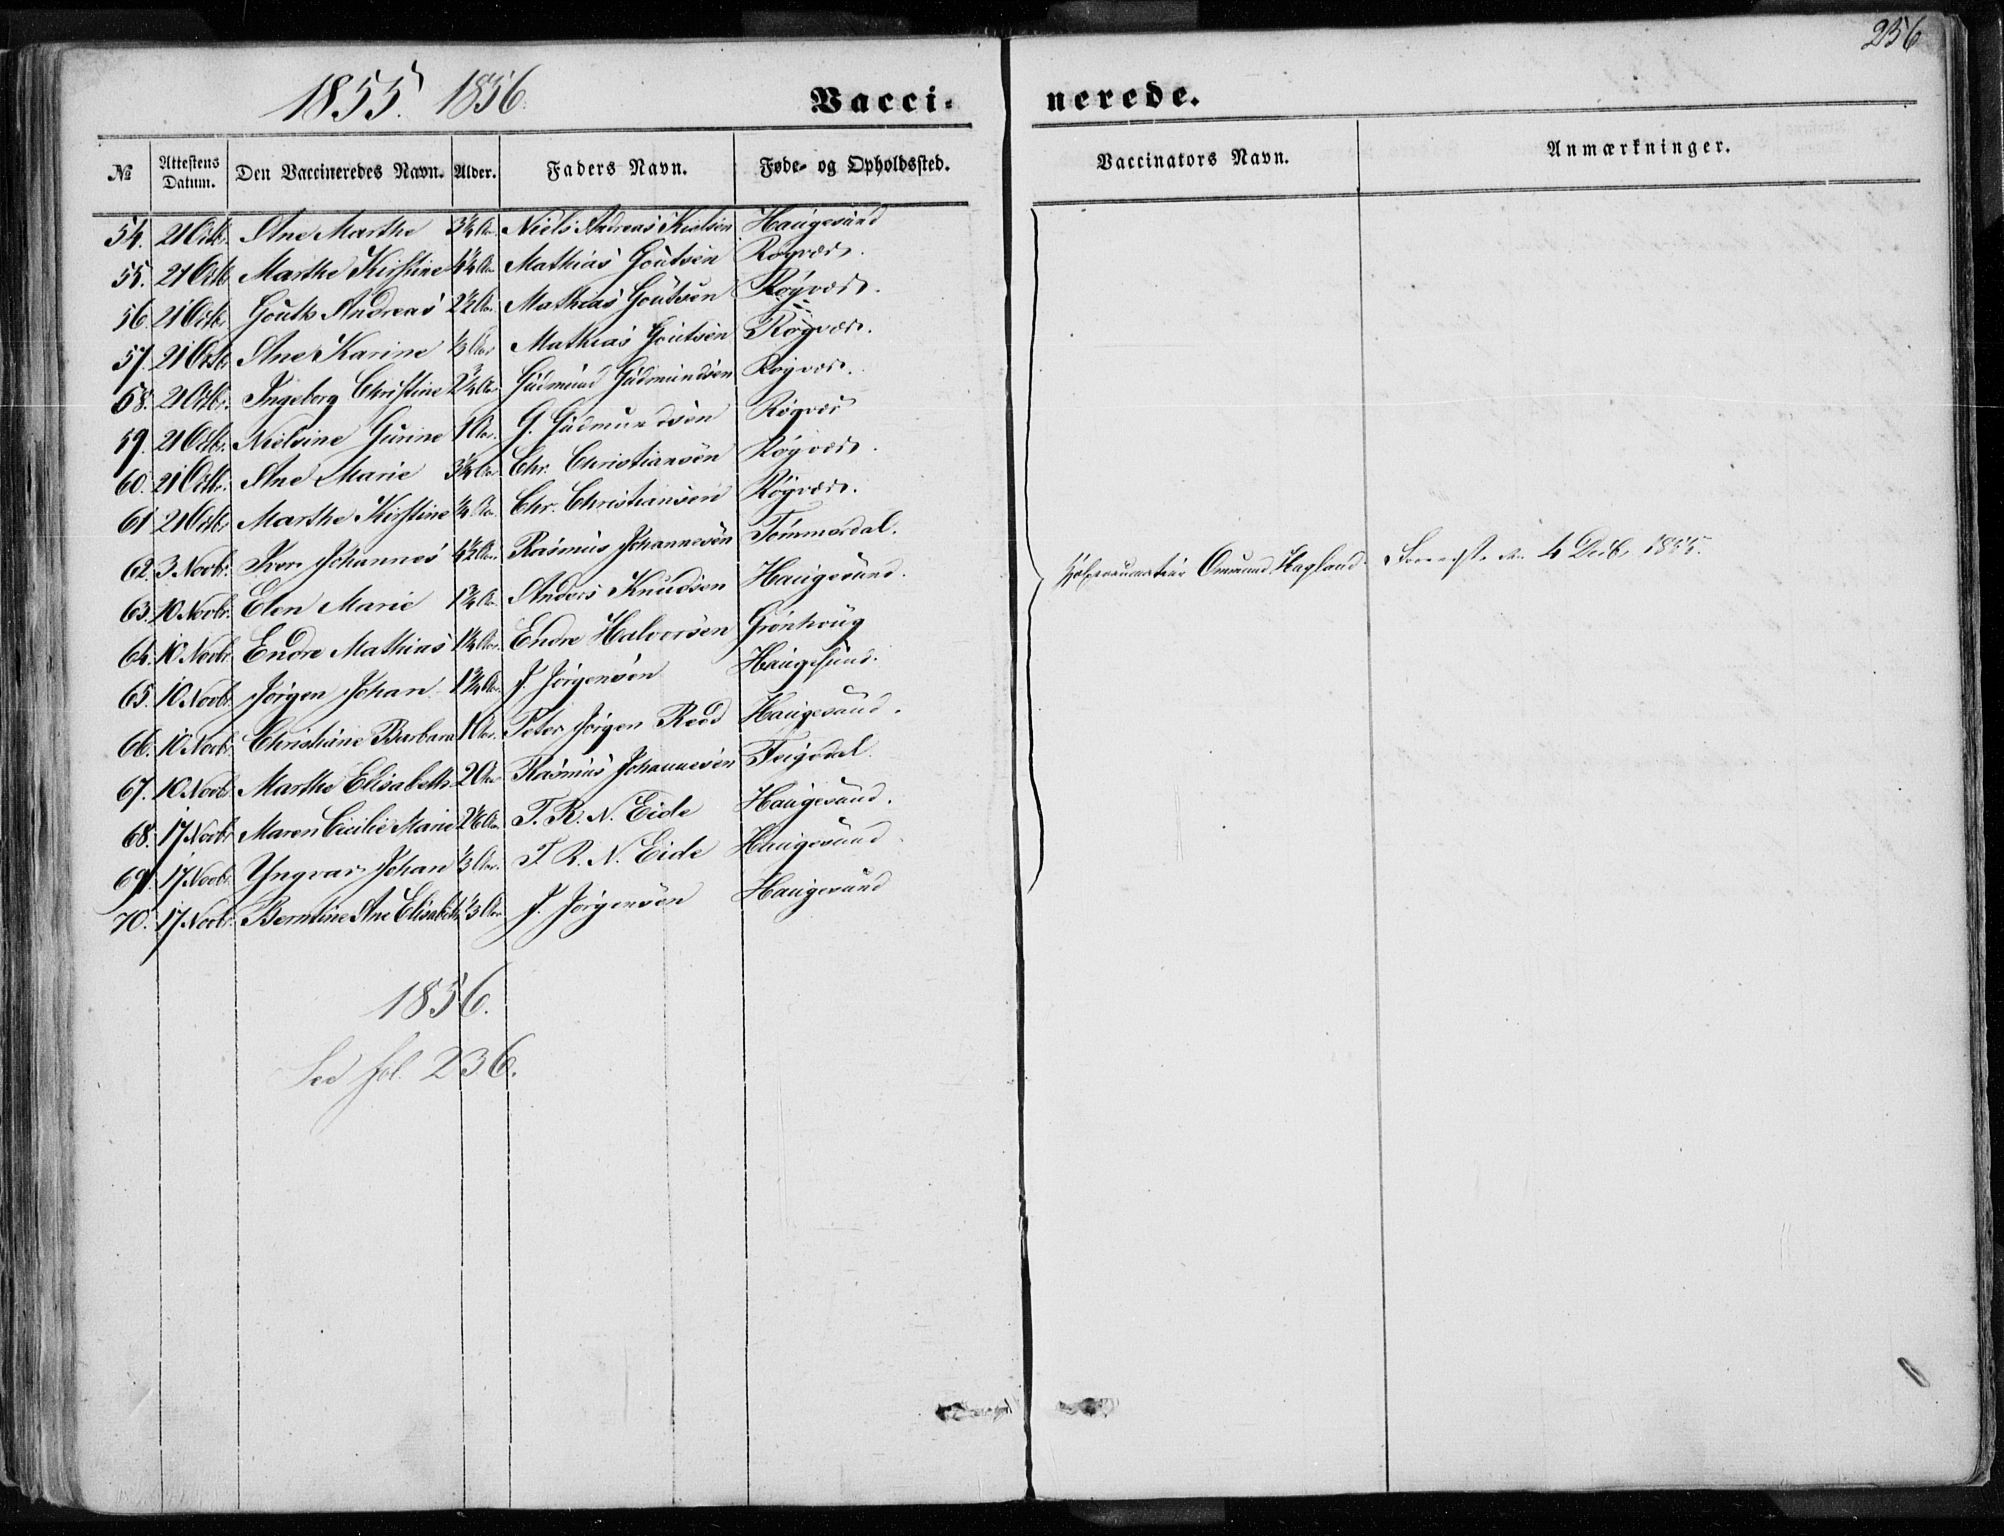 256
1855. 1856.
Vacci- nerede.
№ Attestens Datum. Den Vaccineredes Navn. Alder. Faders Navn. Føde- og Opholdssted. Vaccinators Navn. Anmærkninger.
54. 21 Octbr. Ane Marthe 3¼ Aar Niels Andreas Haugesund
55. 21 Octbr Marthe Kirstine 4¼ Aar Mathias Goutsen Røgvær.
56 21 Octbr Gouth Andreas 2½ Aar Mathias Goutsen Røgvær.
57. 21 Octbr Ane Karine ⅓ Aar Mathias Goutsen Røgvær.
58. 21 Octbr. Ingeborg Christine 2¾ Aar Gudmund Gudmundsen Røgvær.
59. 21 Octbr. Nielsine Gurine 1 Aar. G. Gudmundsen Røgvær
60. 21 Octbr. Ane Marie 3¼ Aar Chr. Christiansen Røgvær.
61 21 Octbr Marthe Kirstine ¼ Aar Chr. Christiansen Røgvær.
62. 3 Novbr. Johannes 4½ Aar Rasmus Johannesen Tømmerdal.
Ommund Hagland. 4 Decb. 1855.
63. 10 Novbr. Elen Marie 1¾ Aar Anders Knudsen Haugesund.
64. 10 Novbr. Endre Mathias 1¼ Aar Endre Halvorsen Grønhoug
65. 10 Novbr Jørgen Johan 1¾ Aar J. Jørgensen Haugesund.
66. 10 Novbr. Christiane Barbara 1 Aar. Peter Jørgen Reed Haugesund.
67. 10 Novbr Marthe Elisabeth 2 Aar Rasmus Johannesen
68. 17 Novbr Maren Cicilie Marie 2⅙ Aar T. R. N. Eide Haugesund.
69. 17 Novbr. Yngvar Johan ⅓ Aar. T. R. N. Eide Haugesund
70. 17 Novbr. Berntine Ane Elisabeth ⅓ Aar J. Jørgensen Haugesund
1856.
See fol. 236.